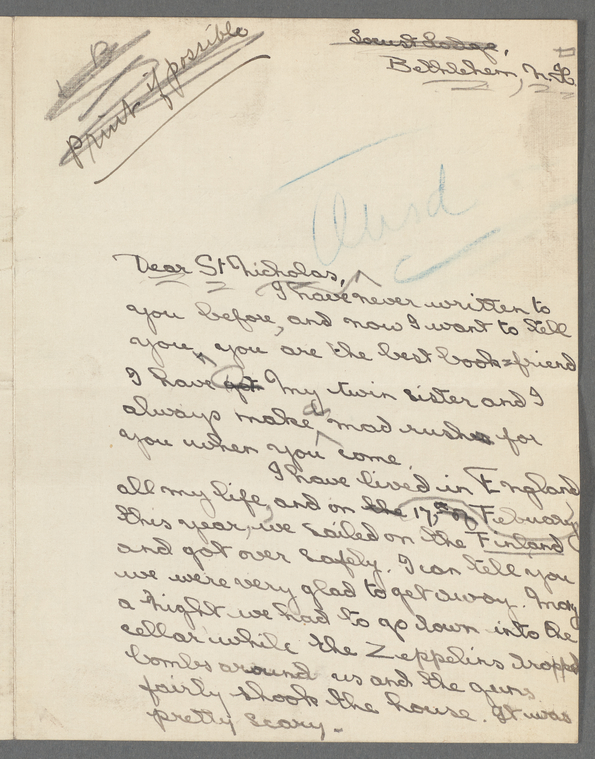 Print if possible
Locust Lodge,
Bethlehem, N.H.
Used
Dear St Nicholas,
I have never written to
you before, and now I want to tell
you, you are the best book=friend
I have got My twin sister and I
always make a mad rushes for
you when you come.
I have lived in England
all my life, and on the 17th of Febuary,
this year, we sailed on the Finland
and got over safely. I can tell you
we were very glad to get away. Many
a night we had to go down into the
cellar while the Zeppelins dropped
bombs around us and the guns
fairly shook the house. It was
pretty scary.